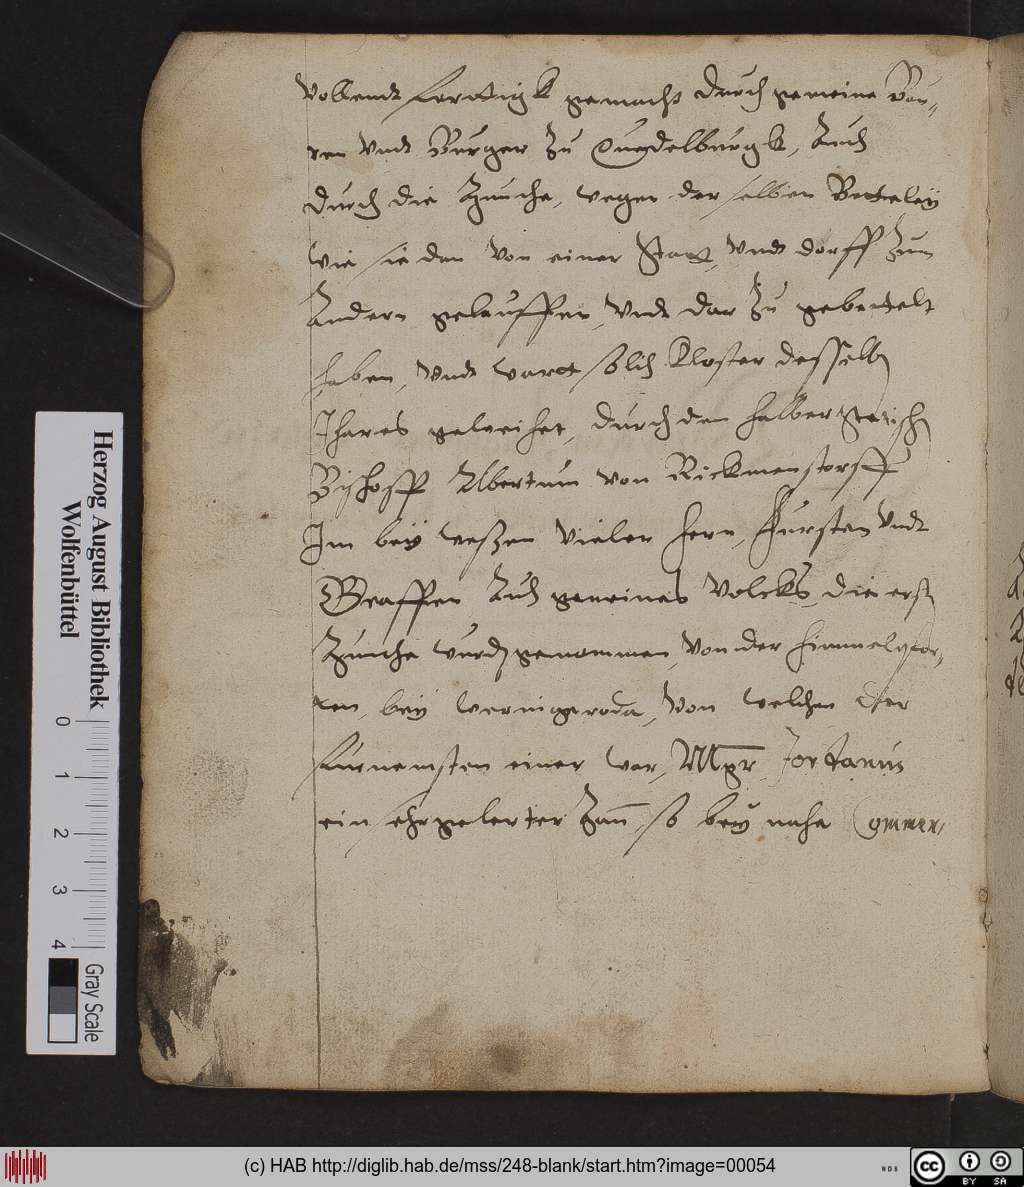 Vollendt ferttigk gemacht durch gemeine Bau„
ren Vndt Burger zu Quedelburgk, Auch
durch die Munche, wegen derselbien Betteleÿ
wie sie dan Von einer Statt, Vndt dorff Zum
Andern gelauffen, Vndt dar zu gebettelt
haben, Vndt wartt solch Kloster desselb
Jhares geweihet, durch den Halberstetisch
Bischoff Albertum von Rickmenstorff
Im beÿ weßen Vieler Hern, Fursten Vndt
Graffen Auch gemeines Volcks, die erst
Munche wurd genommen, Von der Himmelpfor,
ten, beÿ Werningeroda, Von welchen der
furnemsten einer war, Mgr Jortanus
ein sehr gelerter Man, so beÿ nahe Commen,
Herzog August Bibliothek
Wolfenbüttel
0 1 2 3 4
Gray Scale
(c) HAB http://diglib.hab.de/mss/248-blank/start.htm?image=00054
WDB
cc BY SA